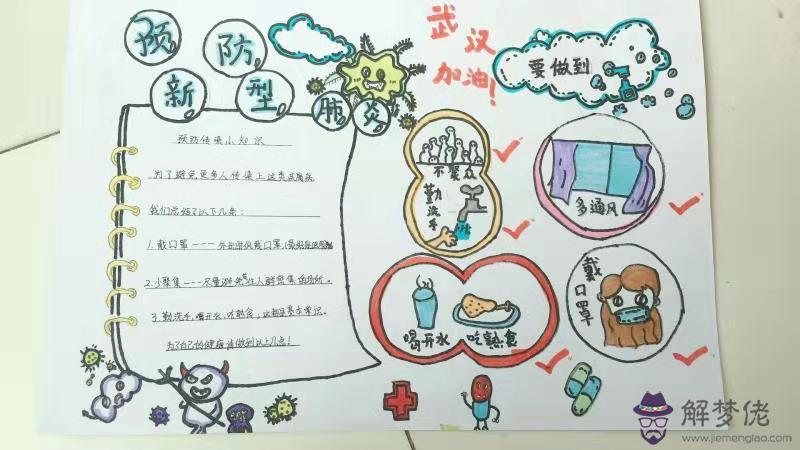 预防
新型肺炎
武汉
加油!
要做到
预防传染小知识
为了避免更多人传染上这类病
我们总结了以下几条:
1.戴口罩---外出要佩戴口罩
2.少聚集---尽量避免在人群密集的场所。
3.勤洗手,喝开水,吃熟食,这都是基本常识。
为了自己的健康请做到以上几点!
不聚众
勤洗手
多通风
喝开水 吃熟食
戴口罩
解梦佬
www.jiemenglao.com